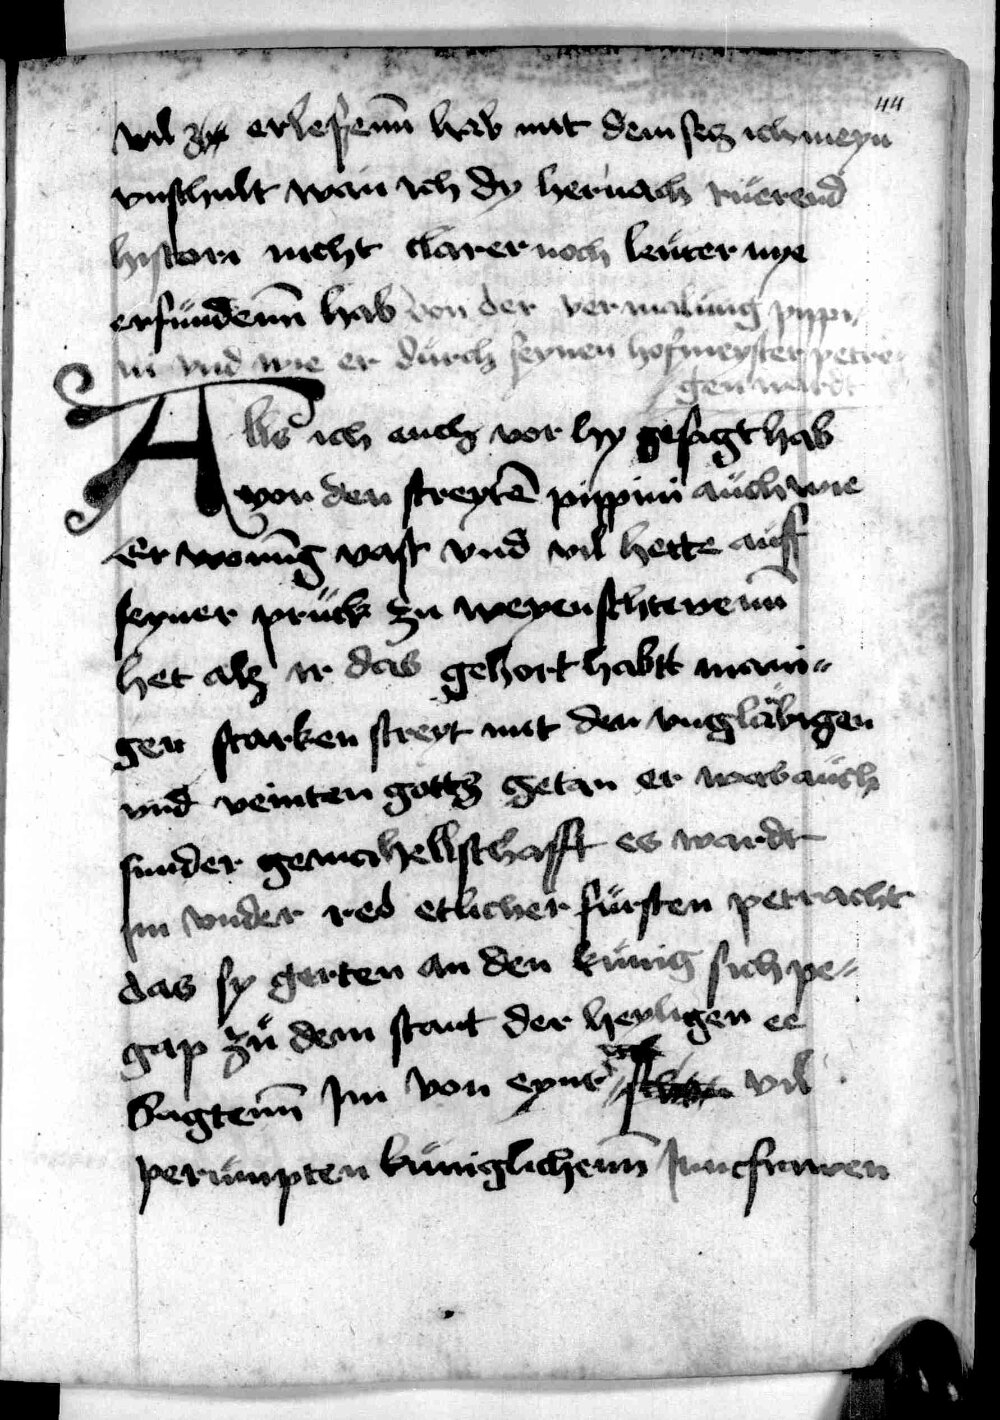 44
vil erlesenn hab mit dem setz ich meyn
vnschult wan ich dy hernach rüerend
histori nicht clarer noch leuter nye
erfundenn hab von der vermalung pippi,
ni vnd wie er durch seynen hofmeyster petro-
gen wardt
Alls ich auch vor hy gesagt hab
von den streytē pippini auch wie
Er wonūg vast vnd vil hette auff
seyner prück zu weyenschteuenn
het alz ir das gehort habtt mani-
gen starken streyt mit den vngläbigen
vnd veinten gottz getan er was auch
sunder gemahellschafft es wardt
Im vnder red etlicher fürsten petracht
das sy gerten an den künig sich pe-
gap zu dem stant der heyligen ee
Sagtenn Im von eyner vil
perümpten küniglichenn Iuncfrawen